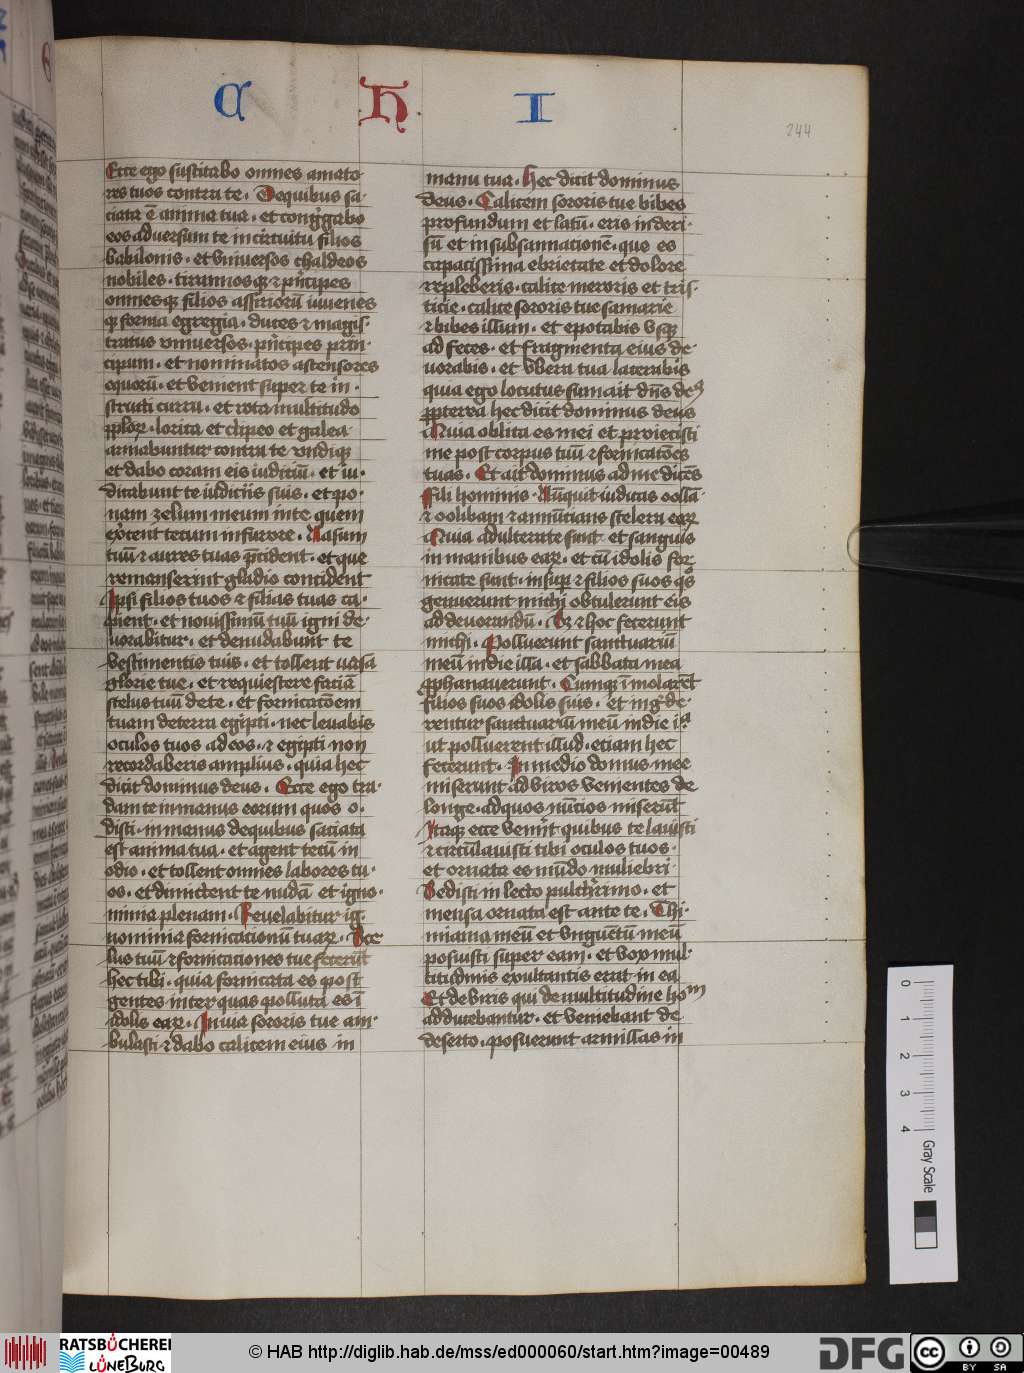 C H I
244
Ecce ego suscitabo omnes amato
res tuos contra te · De quibus sa·
ciata ē anima tua · et congͬgabo
eos adversum te in circuitu filios
babilonis · et universos chaldeos
nobiles · tirannosqꝫ ⁊ pͥncipes
omnesqꝫ filios assirioꝝū iuvenes
qꝫ forma egregia · duces ⁊ magis·
tratus universos · pͥncipes prin·
cipum · et nominatos ascensores
equorū · et venient super te in·
structi curru · et rota multitudo
pploꝝ · lorica et clipeo et galea
armabuntur contra te undiqꝫ
et dabo coram eis iudiciū · et iu·
dicabunt te iudiciis suis · et po·
nam zelum meum in te quem
exercent tecum in furore · Nasum
tuū ⁊ aures tuas p̄cident · et que
remanserint gladio concident
Ipsi filios tuos ⁊ filias tuas ca·
pient · et novissimū tuū igni de·
vorabitur · et denudabunt te
vestimentis tuis · et tollent vasa
glorie tue · et requiescere faciā
scelus tuū de te · et fornicacōem
tuam de terra egipti · nec levabis
oculos tuos ad eos · ⁊ egipti non
recordaberis amplius · quia hec
dicit dominus deus · Ecce ego tra·
dam te in manus eorum quos o·
disti · in manus de quibus saciata
est anima tua · et agent tecū in
odio · et tollent omnes labores tu·
os · et dimictent te nudā et igno·
minia plenam · Revelabitur ig·
nominia fornicationū tuaꝝ · Sce
lus tuū ⁊ fornicationes tue fecerūt
hec tibi · quia fornicata es post
gentes inter quas polluta es ī
idolis eaꝝ · In via sororis tue am·
bulasti ⁊ dabo calicem eius in
manu tua · Hec dicit dominus
deus · Calicem sororis tue bibes
profundum et latū · eris in deri·
sū et in subsannationē · que es
capacissima ebrietate et dolore
repleberis · calice meroris et tris·
ticie · calice sororis tue samarie
⁊ bibes illum · et epotabis usqꝫ
ad feces · et fragmenta eius de·
vorabis · et ubera tua lacerabis
quia ego locutus sum ait dn̄s deꝰ
ꝓpterea hec dicit dominus deus
Quia oblita es mei et proiecisti
me post corpus tuū ⁊ fornicatōes
tuas · Et ait dominus ad me dicēs
Fili hominis · Nūquit iudicas oollā
⁊ oolibam ⁊ annūcians scelera eaꝝ
Quia adulterate sunt · et sanguis
in manibus eaꝝ · et cū idolis for
nicate sunt · insuꝑ ⁊ filios suos qͦs
genuerunt michi obtulerunt eis
ad devorandū · Sꝫ ⁊ hoc fecerunt
michi · Polluerunt sanctuariū
meū in die illa · et sabbata mea
ꝓphanaverunt · Cumqꝫ īmolarēt
filios suos idolis suis · et ingͬde·
rentur sanctuariū meū in die iͣ
ut polluerent illud · etiam hec
fecerunt · In medio domus mee
miserunt · ad viros venientes de
longe · ad quos nūcios miserūt
Itaqꝫ ecce venerūt quibus te lavisti
⁊ circūlavisti tibi oculos tuos ·
et ornata es mūdo muliebri
Sedisti in lecto pulcherrimo · et
mensa ornata est ante te · Thi·
miama meū et unguētū meū
posuisti super eam · et vox mul·
titudinis exultantis erat in ea
Et de viris qui de multitudine hoᵐ
adducebantur · et veniebant de
deserto · posuerunt armillas in
0 1 2 3 4
Gray Scale
RATSBÜCHEREI
LÜNEBURG
© HAB http://diglib.hab.de/mss/ed000060/start.htm?image=00489
DFG
cc BY SA